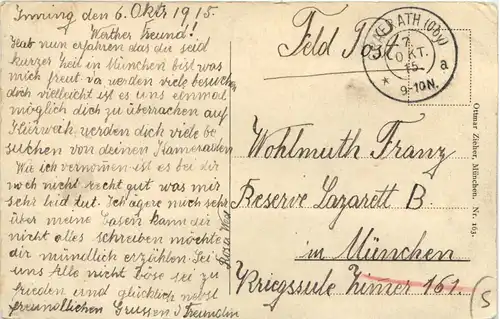 Inning den 6. Oktr 1915.
Werther Freund!
Hab nun erfahren das der seid
kurzer Zeit in München bist was
mich freut da werden viele besuchen
dich vielleicht ist es uns einmal
möglich dich zu überrachen auf
werden dich viele be
suchen von deinen Kameraden
Wie ich vernomen ist es bei dir
noch nicht recht gut was mir
sehr leid tut. Ich ägere mich sehr
über meine Basen kann dir
nicht alles schreiben möchte
dir mündlich erzählen. Sei
uns Alle nicht böse sei zu
frieden und glücklich nebst
freundlichen Grussen d Freundin
Feld Post
7.
OKT.
15.
9-10N.
a
Wohlmuth Franz
Reserve Lazarett B.
in München
Kriegssule Zimer 161.
5
Ottmar Zieher, München. Nr. 163.